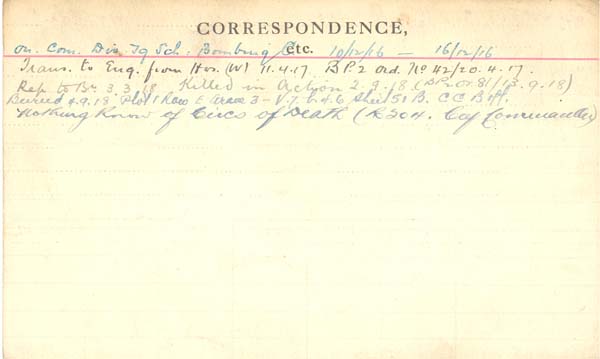 CORRESPONDENCE,
on. Com. Div. Tg Sch. Bombing etc. 10/12/16 — 16/12/16
Trans. to Eng. from Hos. (W) 11.4.17 BP2 Ord. No 42/20.4.17.
Rep to Bn. 3.3.18 Killed in Action 2.9.18 (BP2 Or 81/13.9.18)
Buried 4.9.18 Plot 1 Row E Grave 3 - V.7.b.4.6 Sheet 51 B.
Nothing Know of Circs of Death (R304. Coy Commander)